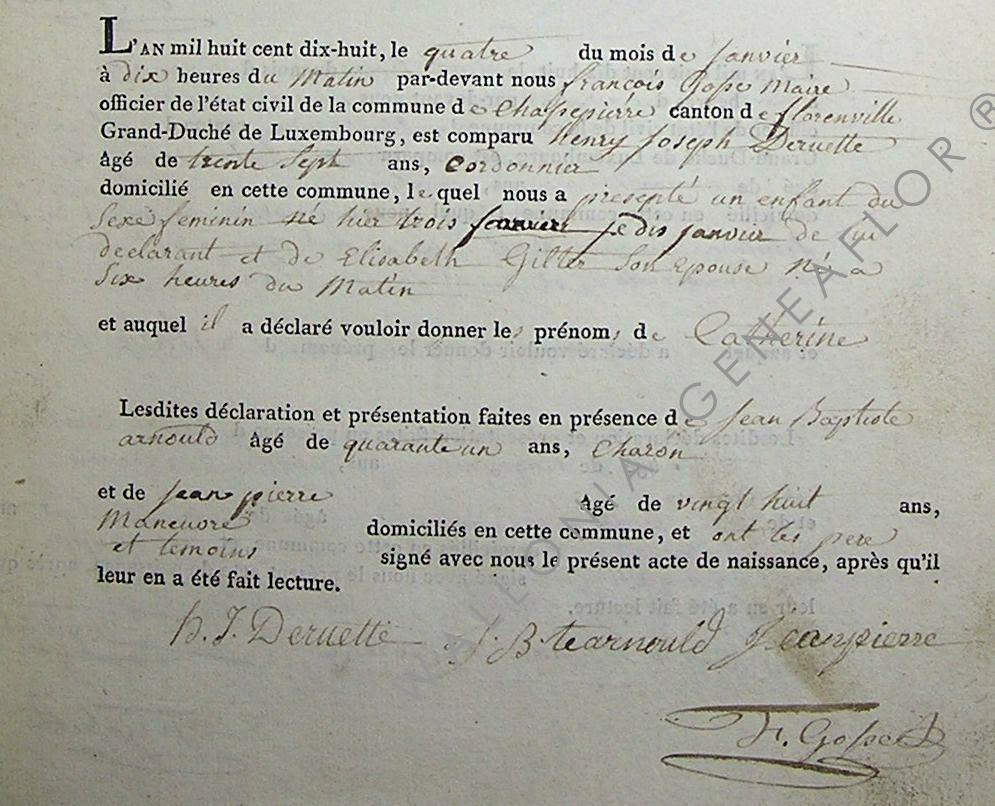 L'AN mil huit cent dix-huit, le quatre du mois de janvier
à dix heures du Matin par-devant nous françois Gosse Maire
officier de l'état civil de la commune de Chassepierre canton de florenville
Grand-Duché de Luxembourg, est comparu henry Joseph Deruette
âgé de trente Sept ans, Cordonnier
domicilié en cette commune, lequel nous a presenté un enfant du
Sexe feminin né hier trois janvier je dis janvier de lui
declarant et de Elisabeth Gilter Son epouse né a
Six heures du Matin
et auquel il a déclaré vouloir donner les prénoms de Catherine
Lesdites déclaration et présentation faites en présence de Jean Baptiste
arnould âgé de quarante un ans, Charon
et de jean pierre âgé de vingt huit ans,
Maneuvre domiciliés en cette commune, et ont les pere
et temoins signé avec nous le présent acte de naissance, après qu'il
leur en a été fait lecture.
h. J. Deruette J. B. te arnould Jeanpierre
F. Gosse
WALLONIA GENEAFLOR ®